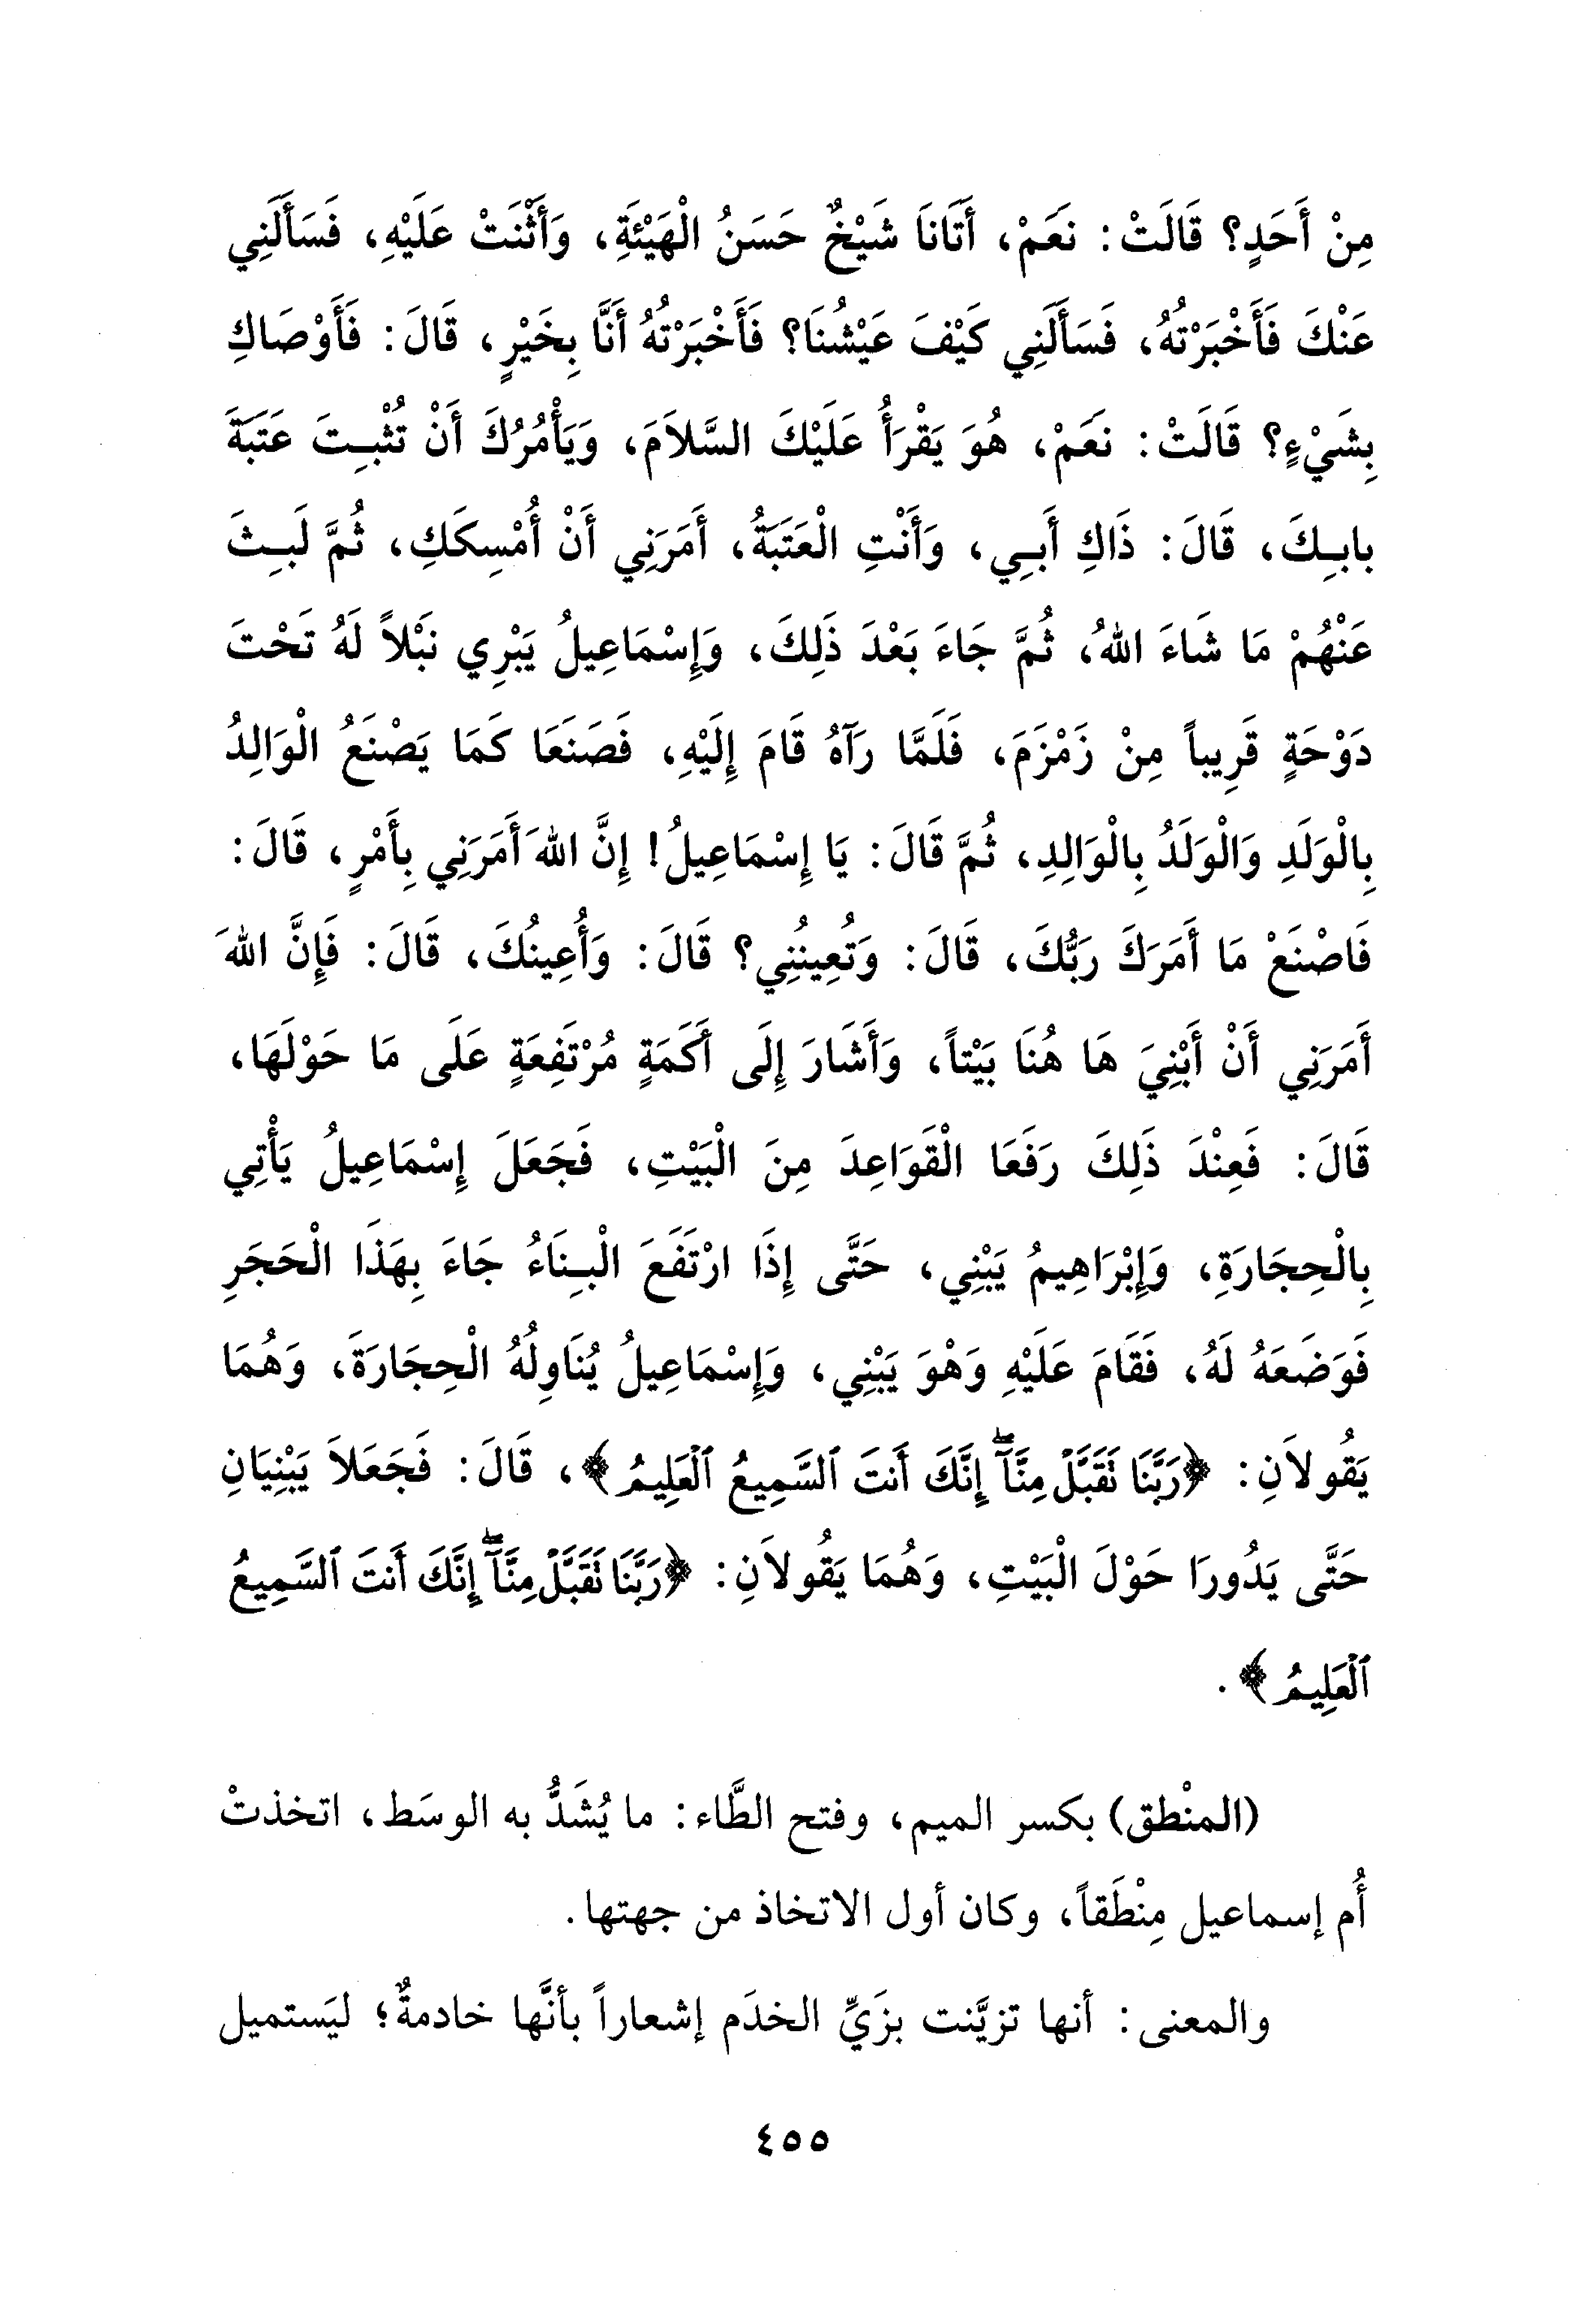 مِنْ أَحَدٍ؟ قَالَتْ: نَعَمْ، أَتَانَا شَيْخٌ حَسَنُ الْهَيْئَةِ، وَأَثْنَتْ عَلَيْهِ، فَسَأَلَنِي
عَنْكَ فَأَخْبَرْتُهُ، فَسَأَلَنِي كَيْفَ عَيْشُنَا؟ فَأَخْبَرْتُهُ أَنَّا بِخَيْرٍ، قَالَ: فَأَوْصَاكِ
بِشَيْءٍ؟ قَالَتْ: نَعَمْ، هُوَ يَقْرَأُ عَلَيْكَ السَّلاَمَ، وَيَأْمُرُكَ أَنْ تُثْبِتَ عَتَبَةَ
بابِكَ، قَالَ: ذَاكِ أَبِي، وَأَنْتِ الْعَتَبَةُ، أَمَرَنِي أَنْ أُمْسِكَكِ، ثُمَّ لَبِثَ
عَنْهُمْ مَا شَاءَ اللهُ، ثُمَّ جَاءَ بَعْدَ ذَلِكَ، وَإِسْمَاعِيلُ يَبْرِي نَبْلاً لَهُ تَحْتَ
دَوْحَةٍ قَرِيباً مِنْ زَمْزَمَ، فَلَمَّا رَآهُ قَامَ إِلَيْهِ، فَصَنَعَا كَمَا يَصْنَعُ الْوَالِدُ
بِالْوَلَدِ وَالْوَلَدُ بِالْوَالِدِ، ثُمَّ قَالَ: يَا إِسْمَاعِيلُ! إِنَّ اللهَ أَمَرَنِي بِأَمْرٍ، قَالَ:
فَاصْنَعْ مَا أَمَرَكَ رَبُّكَ، قَالَ: وَتُعِينُنِي؟ قَالَ: وَأُعِينُكَ، قَالَ: فَإِنَّ اللهَ
أَمَرَنِي أَنْ أَبْنِيَ هَا هُنَا بَيْتاً، وَأَشَارَ إِلَى أَكَمَةٍ مُرْتَفِعَةٍ عَلَى مَا حَوْلَهَا،
قَالَ: فَعِنْدَ ذَلِكَ رَفَعَا الْقَوَاعِدَ مِنَ الْبَيْتِ، فَجَعَلَ إِسْمَاعِيلُ يَأْتِي
بِالْحِجَارَةِ، وَإِبْرَاهِيمُ يَبْنِي، حَتَّى إِذَا ارْتَفَعَ الْبِنَاءُ جَاءَ بِهَذَا الْحَجَرِ
فَوَضَعَهُ لَهُ، فَقَامَ عَلَيْهِ وَهْوَ يَبْنِي، وَإِسْمَاعِيلُ يُنَاوِلُهُ الْحِجَارَةَ، وَهُمَا
يَقُولاَنِ: ﴿رَبَّنَا تَقَبَّلْ مِنَّآ ۖ إِنَّكَ أَنتَ ٱلسَّمِيعُ ٱلْعَلِيمُ﴾، قَالَ: فَجَعَلاَ يَبْنِيَانِ
حَتَّى يَدُورَا حَوْلَ الْبَيْتِ، وَهُمَا يَقُولاَنِ: ﴿رَبَّنَا تَقَبَّلْ مِنَّآ ۖ إِنَّكَ أَنتَ ٱلسَّمِيعُ
ٱلْعَلِيمُ﴾.
(المنْطق) بكسر الميم، وفتح الطَّاء: ما يُشَدُّ به الوسَط، اتخذتْ
أُم إسماعيل مِنْطَقاً، وكان أول الاتخاذ من جهتها.
والمعنى: أنها تزيَّنت بزَيِّ الخدَم إشعاراً بأنَّها خادمةٌ؛ ليَستميل
٤٥٥